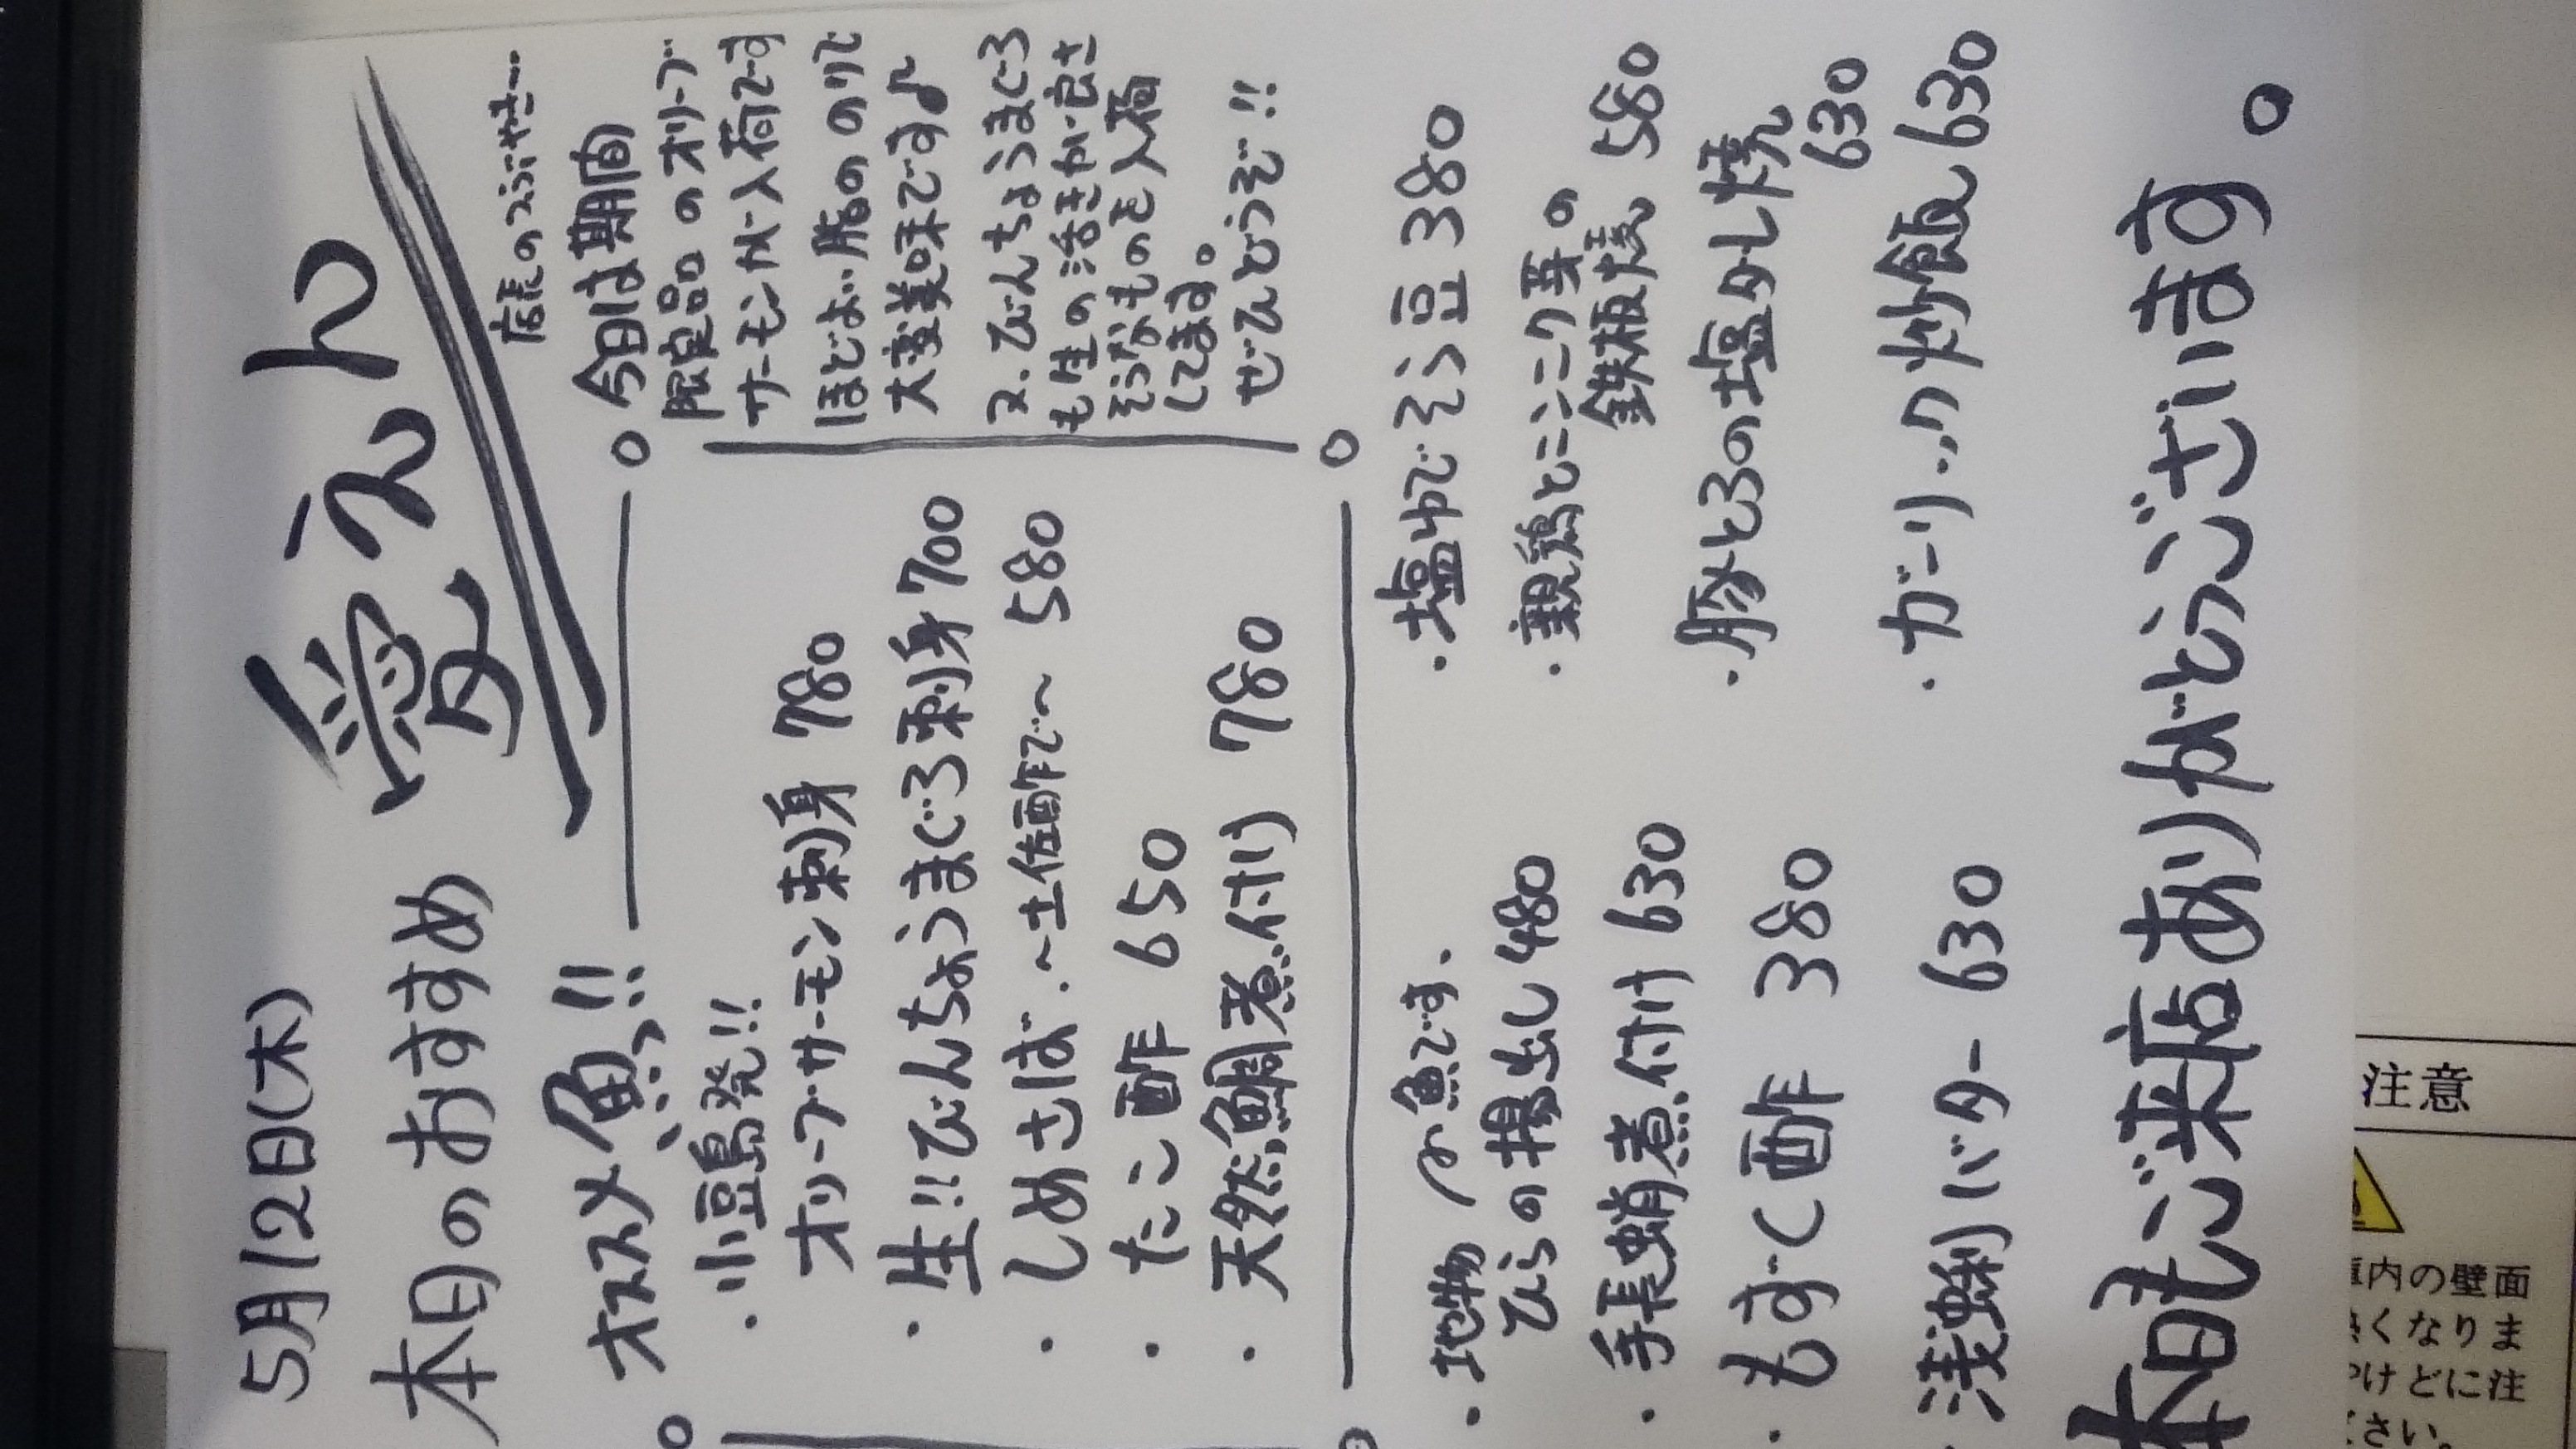 5月12日(木)
本日のおすすめ
愛えん
店長のつぶやき…
オススメ魚!!
・小豆島発!!
オリーブサーモン刺身 780
・生!!びんちょうまぐろ刺身 700
・しめさば.～土佐酢で～ 580
・たこ酢 650
・天然鯛煮付け 780
今日は期間
限定品のオリーブ
サーモンが入荷です
ほどよい脂のりで
大変美味です♪
又、びんちょうまぐろ
も生の活きが良さ
そうなものを入荷
してます。
ぜひどうぞ!!
・地物 魚です.
ひらの揚出し 480
・手長蛸煮付け 630
・もずく酢 380
・浅蜊バター 630
・塩ゆでそら豆 380
・親鶏とニンニク芽の
鉄板焼 580
・豚とろの塩タレ焼
630
・ガーリック炒飯 630
本日もご来店ありがとうございます。
注意
内の壁面
くなりま
けどに注
さい。